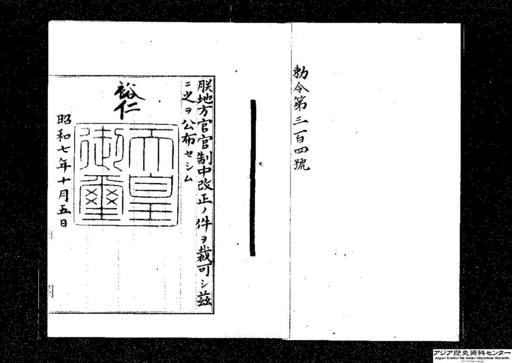 勅令第三百四號
朕地方官官制中改正ノ件ヲ裁可シ茲
ニ之ヲ公布セシム
裕仁
天皇
御璽
昭和七年十月五日
アジア歴史資料センター
Japan Center for Asian Historical Records